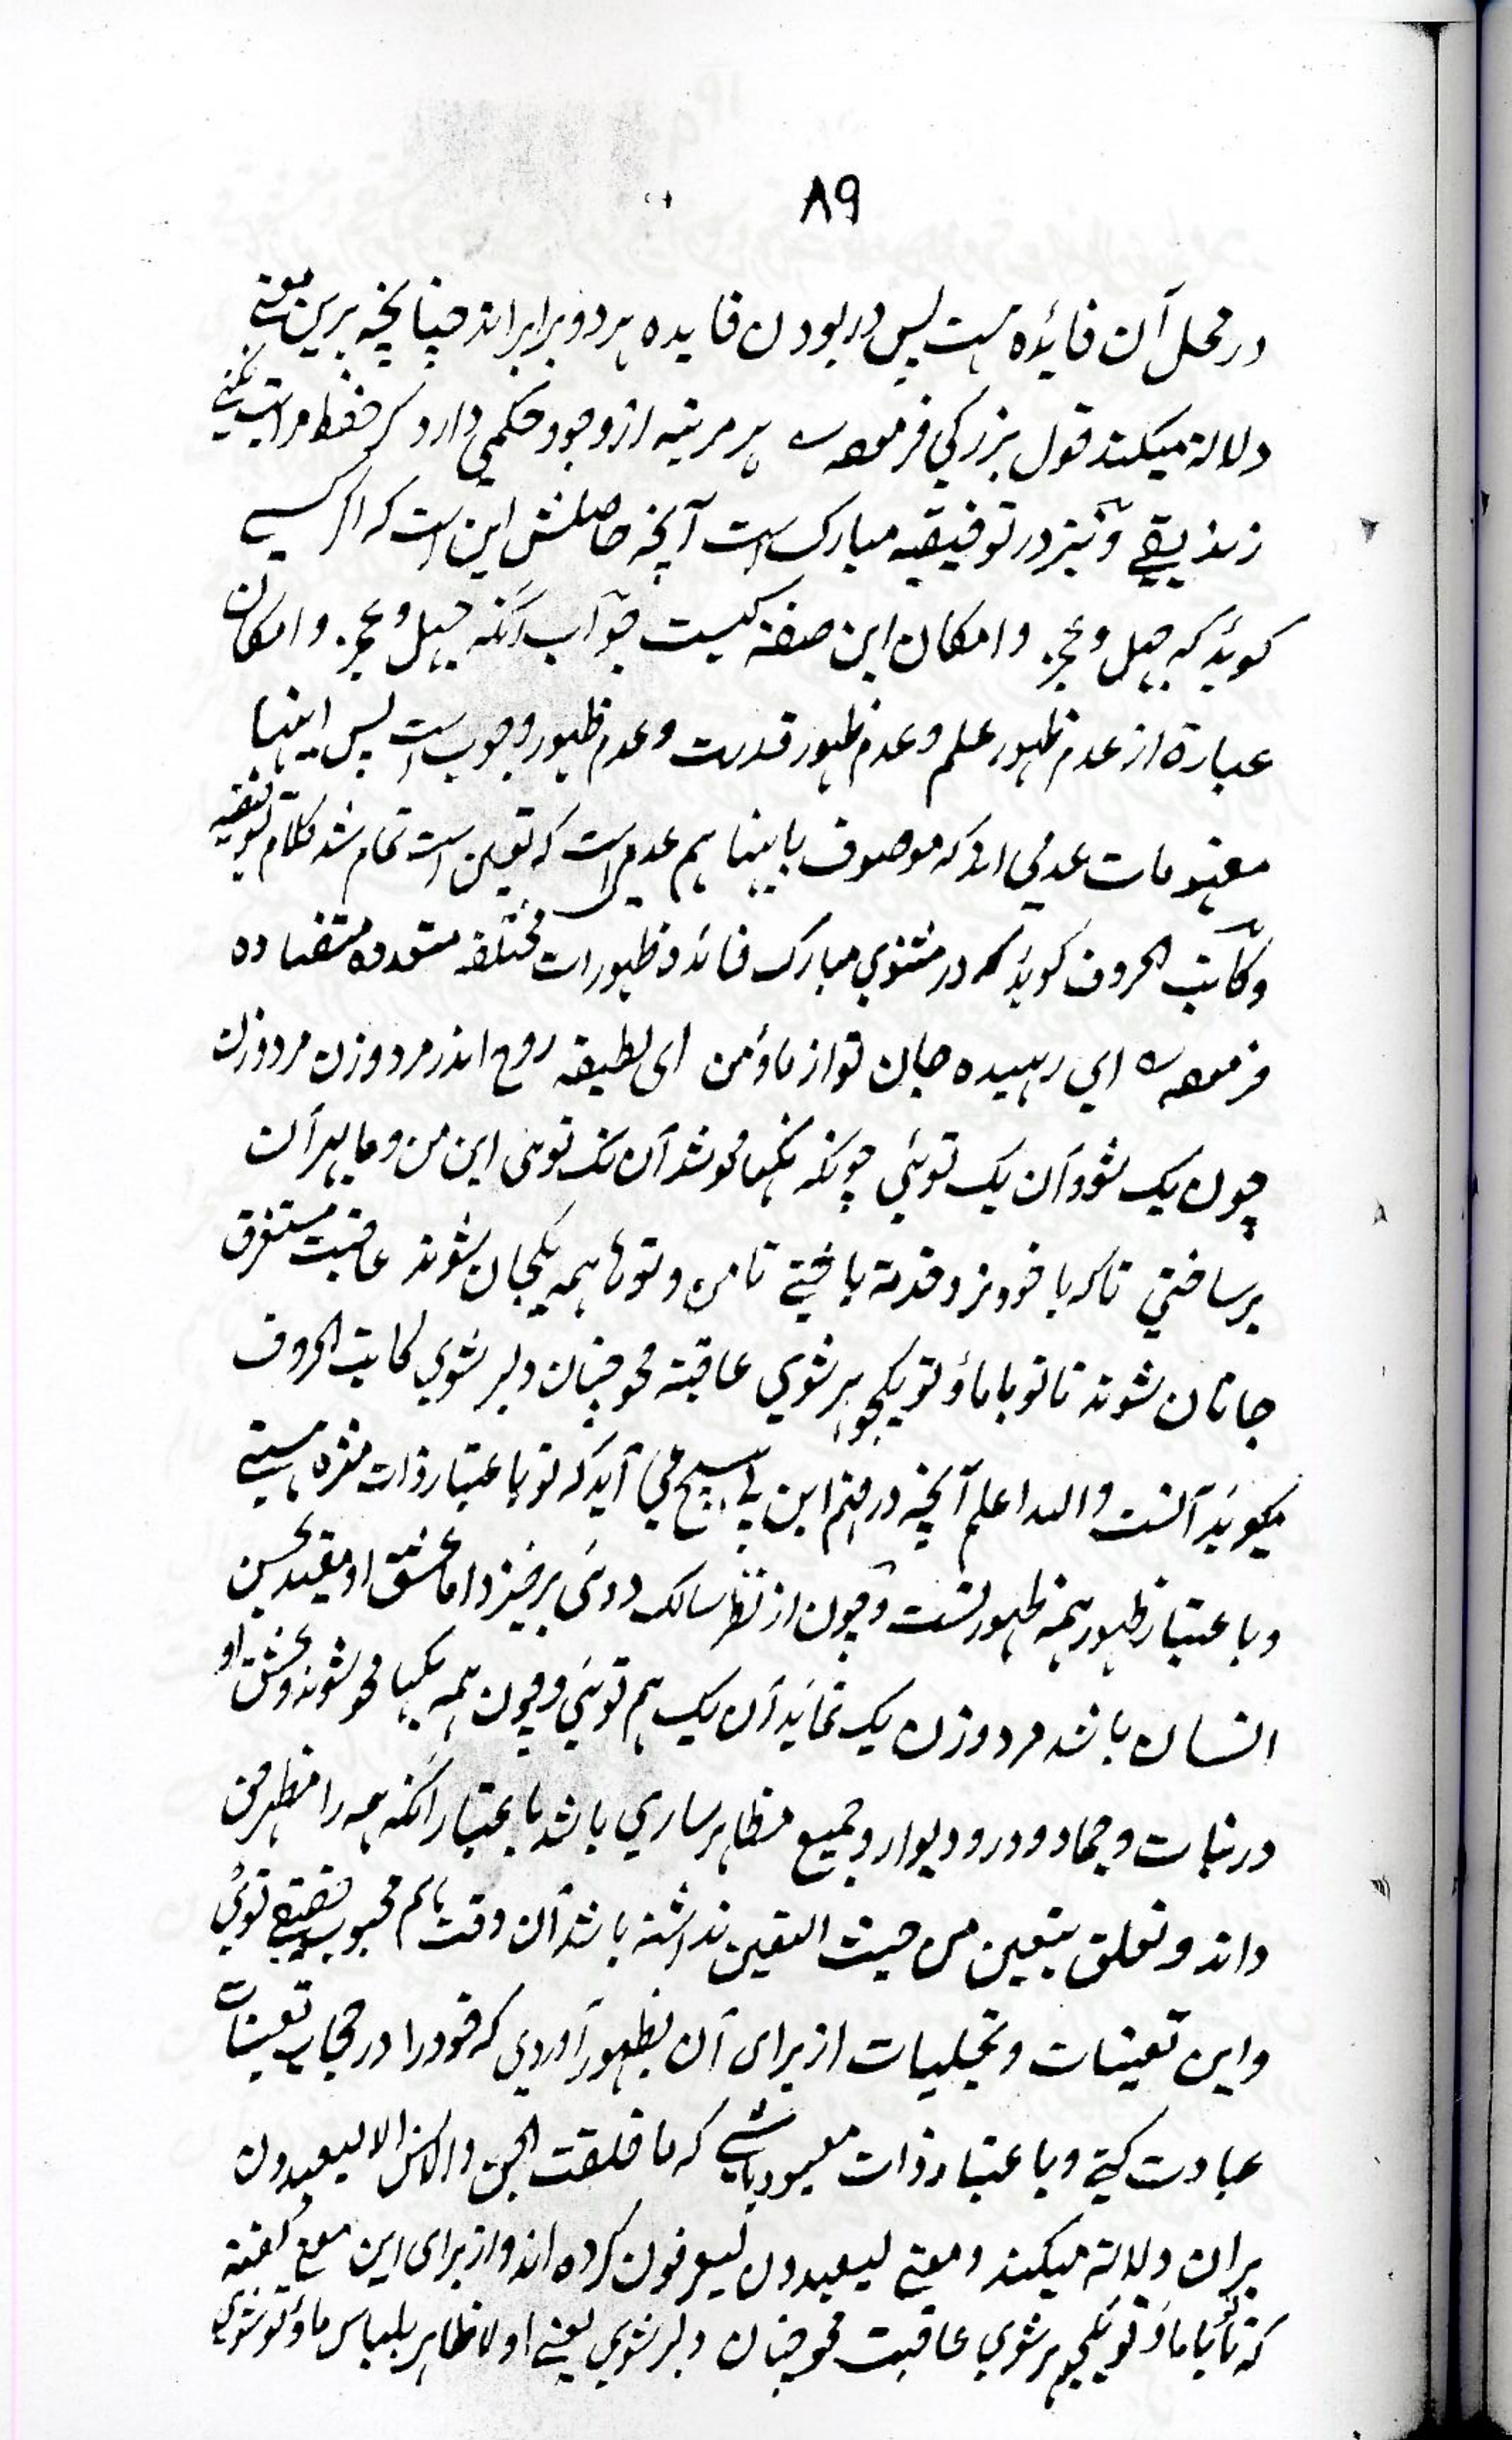 ۸۹
در محل آن فائده هست پس در بودن فایده هر دو برابر اند چنانچه برین معنی
دلالة میکند قول بزرکي فرموده هر مرتبه از وجود حکمی دارد کر حفظ مراتب نکنے
زندیقے و نیز در توفیقیه مبارک است آنچه حاصلش این است که اکر کسے
کوید که جهل و عجز و امکان این صفة کیست جواب آنکه جهل و عجز و امکان
عبارة از عدم ظهور علم و عدم ظهور قدرت و عدم ظهور وجوب است پس اینها
مفهومات عدمي اند که موصوف باینها هم عدم است که تعین است تمام شد کلام توفیقیه
و کاتب الحروف کوید که در مثنوي مبارک فائده ظهورات مختلفه متعدده متضاده
فرموده اي رهیده جان تو از ما و من اى لطیفه روح اندر مرد و زن مرد و زن
چون یک شود آن یک توئي چونکه یکها محو شد آن نک توى این من و ما بهر آن
بر ساختي تا که با خود نرد خدمة باختے تا من و توها همه یکجان شوند عاقبت مستغرق
جانان شوند تا تو با ما و تو یکجوهر شوي عاقبة محو چنان دلبر شوي کاتب الحروف
میکوید آنست والله اعلم آنچه در فهم این هیچ مي آید که تو باعتبار ذات منزه هستے
و باعتبار ظهور همه ظهور تست و چون از نظر سالک دوئى برخیزد اما عشق او مقید بحسن
انسان باشد مرد و زن یک نماید آن یک هم توئي و چون همه یکها محو شوند و عشق او
در نبات و جماد و در و دیوار و جمیع مظاهر ساري باشد باعتبار آنکه همه را مظهر حق
داند و تعلق بتعین من حیث التعین نداشته باشد آن وقت هم محبوب حقیقے توئي
و این تعینات و تجلیات از براى آن بظهور آوردي که خود را در حجاب تعینات
عبادت کنے و باعتبار ذات معبود باشے که ما خلقت الجن والانس الا لیعبدون
بران دلالة میکند و معنے لیعبدون لیعرفون کرده اند و از براى این معنے کفته
که تا تو با ما و تو یکجوهر شوي عاقبت محو چنان دلبر شوي یعنے اولا ظاهر بلباس ما و تو شوي